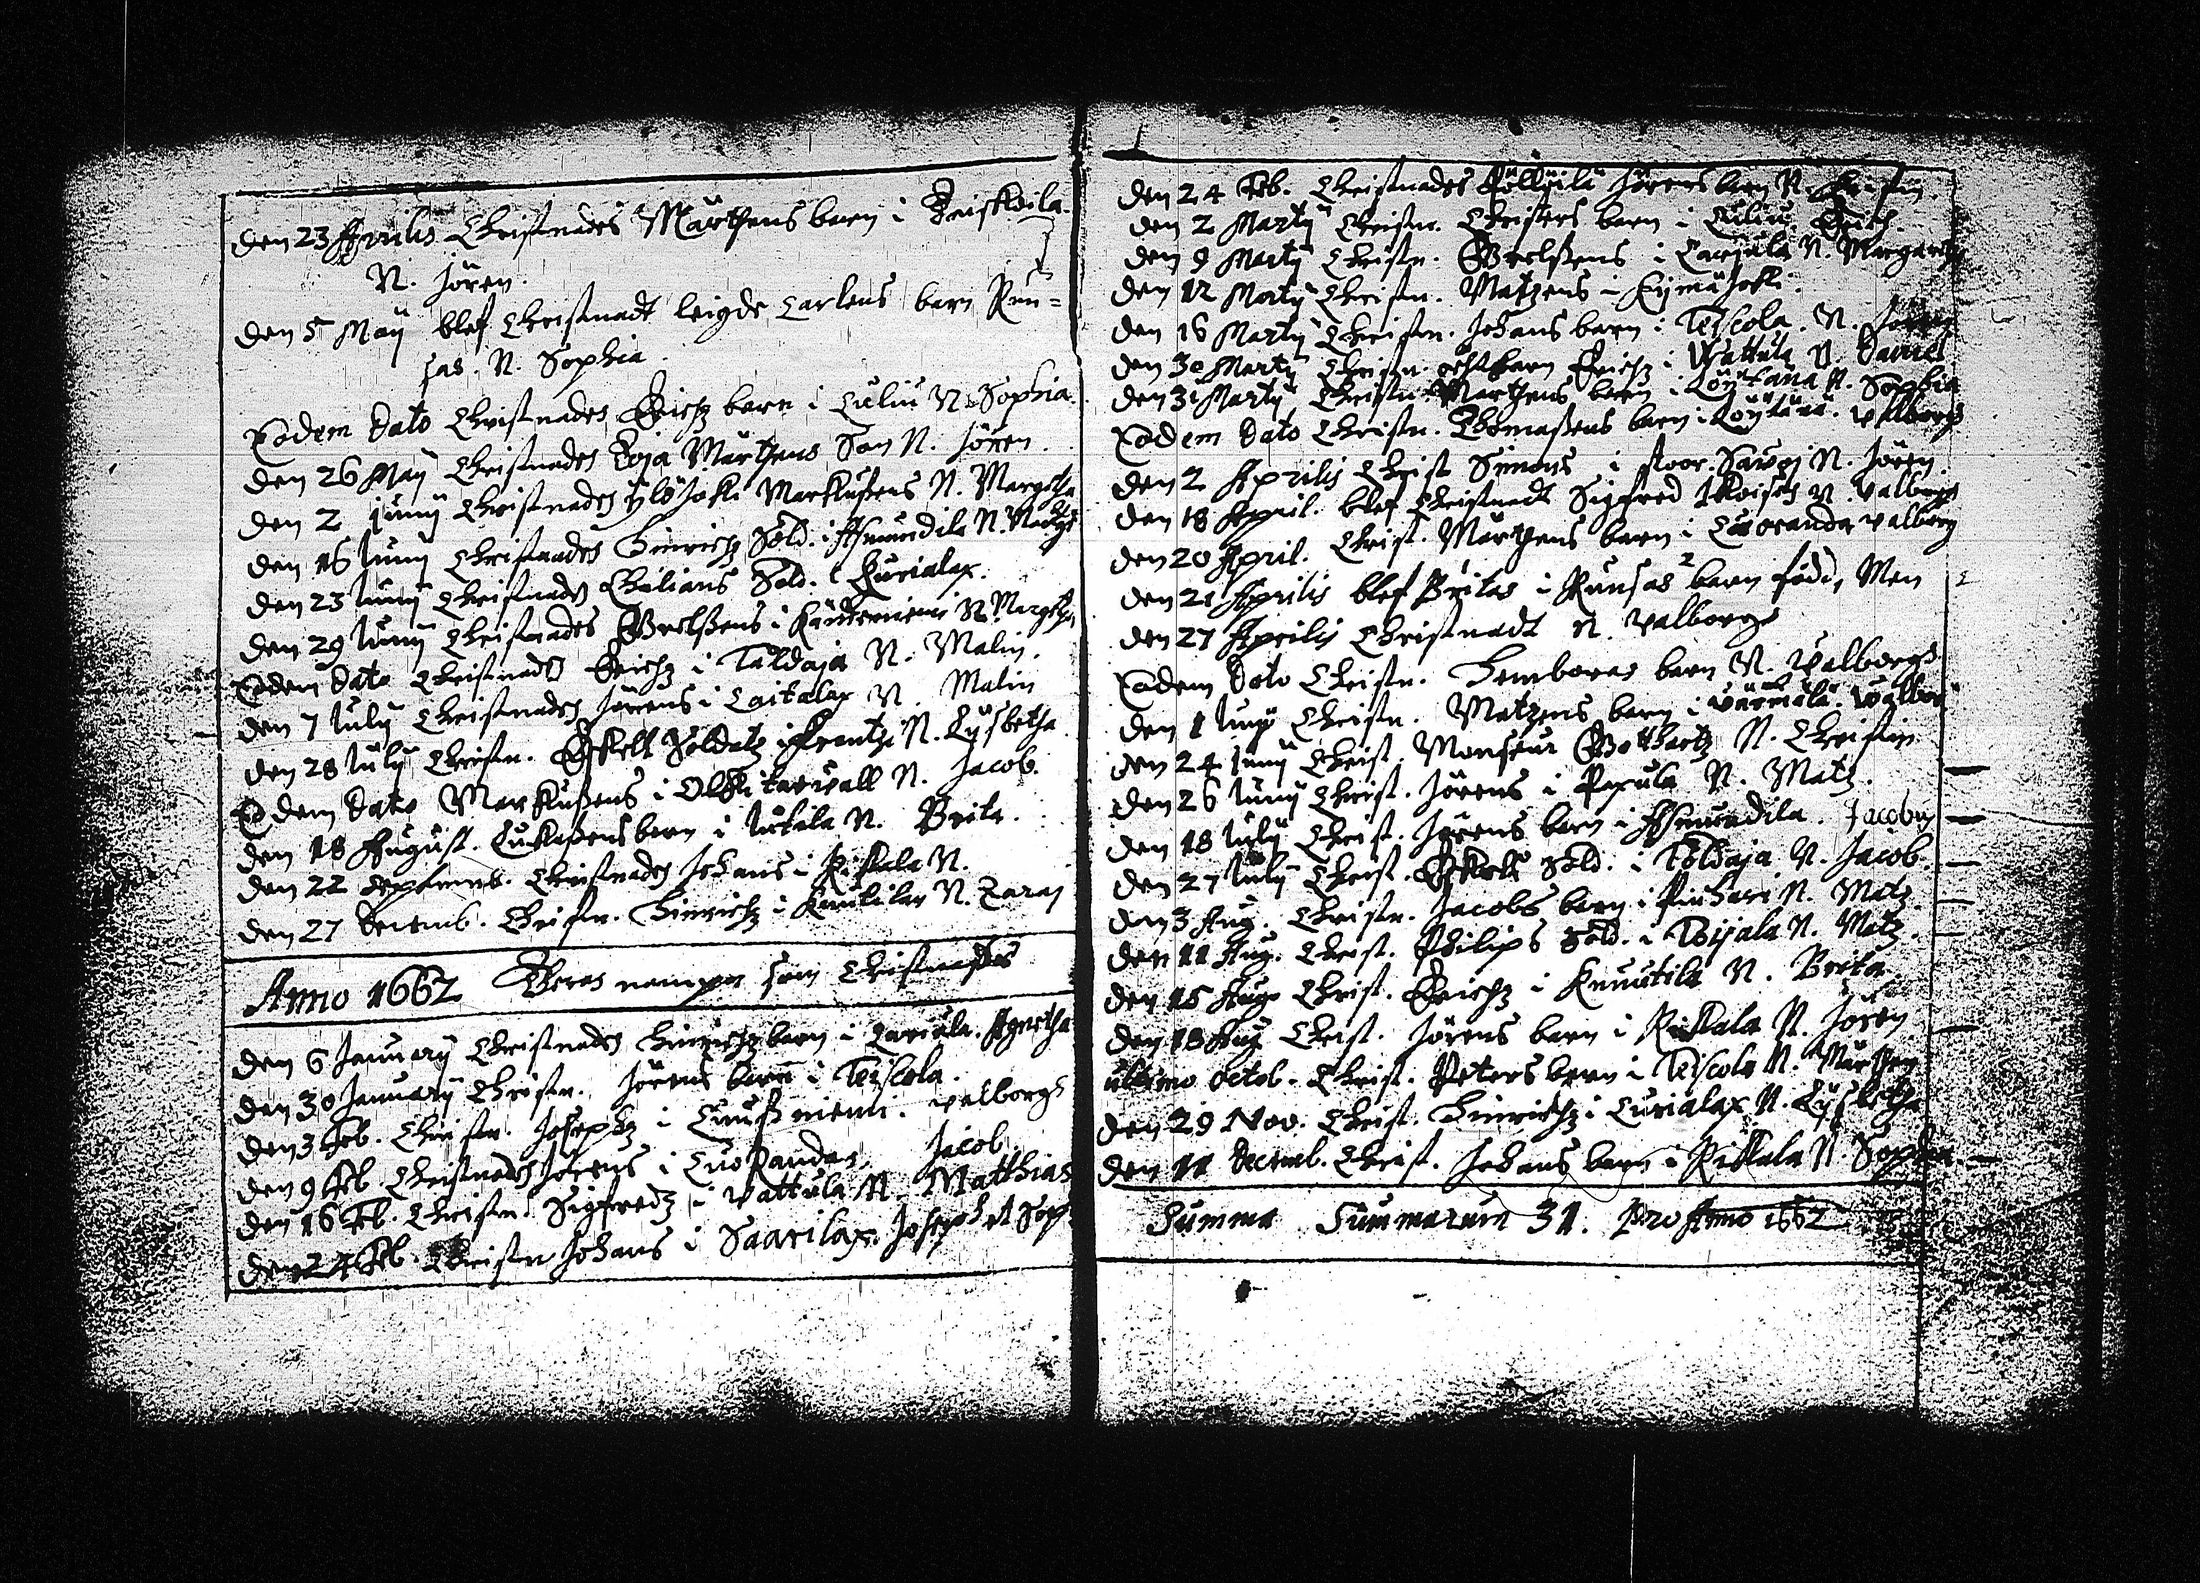 den 23 Aprilis Christnades Mårthens barn i Friskeila
N. Jören.
den 5 Maij blef Christnadt leigde Carlens barn Run=
sas. N. Sophia.
Eodem Dato Christnades Erichz barn i Culiu N. Sophia.
den 26 Maij Christnades Eoja Mårthens Son N. Jören.
den 2 Junij Christnades Ylöjoki Markußens N. Margetha
den 16 Junij Christnades Hinrichz Sold. i Asmundila N.
den 23 Junij Christnades Chilians Sold. i Curialax.
den 29 Junij Christnades Grelßens i N. Margetha
Eodem Dato Christnades Erichz i Taldaja N. Malin.
den 7 Julij Christnades Jörens i Laitalax N. Malin
den 28 Julij Christn. Eskell Soldatz i Frantzi N. Lysbetha
Eodem Dato Markußens i N. Jacob.
den 18 August. Lukaßens barn i Jutila N. Brita.
den 22 Septemb. Christnades Johans i Pistala N.
den 27 Decemb. Christn. Hinrichz i Knutila N. Zaraj
Anno 1662 Theras nampn som Christnades
den 6 Januarij Christnades Hinrichz barn i Lariula. Agertha
den 30 Januarij Christn. Jörens barn i Teiscola.
den 3 Feb. Christn. Josephz i niemi. Valborgs
den 9 Feb. Christnades Jörens i Cuokanda. Jacob
den 16 Feb. Christn. Sigfredz i Vattula N. Matthias
den 24 Feb. Christn Johans i Saarilax. Joseph et Soph
den 24 Feb. Christnades Jörens barn N. Kristin
den 2 Martij Christn. Christers barn i Culiu. Erich.
den 9 Martij Christn. Grelßens i Lariula N. Margareta
den 12 Martij Christn. Matzens i Kijmäjoki.
den 16 Martij Christn. Johans barn i Teiscola. N. Jören
den 30 Martij Christn. barn Erichz i Wattula N. Daniel
den 31 Martij Christn. Mårthens barn i Löytänä N. Sophia
Eodem Dato Christn. Thomaßens barn i Löytänä. Valborg
den 2 Aprilis Christ Simons i stoor. Sawoj N. Jören.
den 18 April. blef Christnadt Sigfred N. Valborgs
den 20 April. Christ. Mårthens barn i Cuocanda Valborg
den 21 Aprilis blef Britas i Runsas 2 barn födde, Men
den 27 Aprilis Christnadt N. Valborgs
Eodem Dato Christn. Hemboras barn N. Valborgs
den 1 Junij Christn. Matzens barn i Värmälä. Walbor
den 24 Junij Christ. Monseur Gotthartz N. Christin
den 26 Junij Christ. Jörens i Papula N. Matz.
den 18 Julij Christ. Jörens barn i Asmundila. Jacobus
den 27 Julij Christ. Eskels Sold. i Toldaja N. Jacob.
den 3 Aug. Christn. Jacobs barn i Piuhari N. Matz.
den 11 Aug. Christ. Philips Sold. i Teijala N. Matz.
den 15 Aug. Christ. Erichz i Knuutila N. Brita.
den 18 Aug Christ. Jörens barn i Pistala N. Jören
ultimo Octob. Christ. Peters barn i Teiscola N. Mårthen
den 29 Nov. Christ. Hinrichz i Curialax N. Lysbetha
den 11 Decemb. Christ. Johans barn i Pistala N. Sophia
Summa Summarum 31. Pro Anno 1662